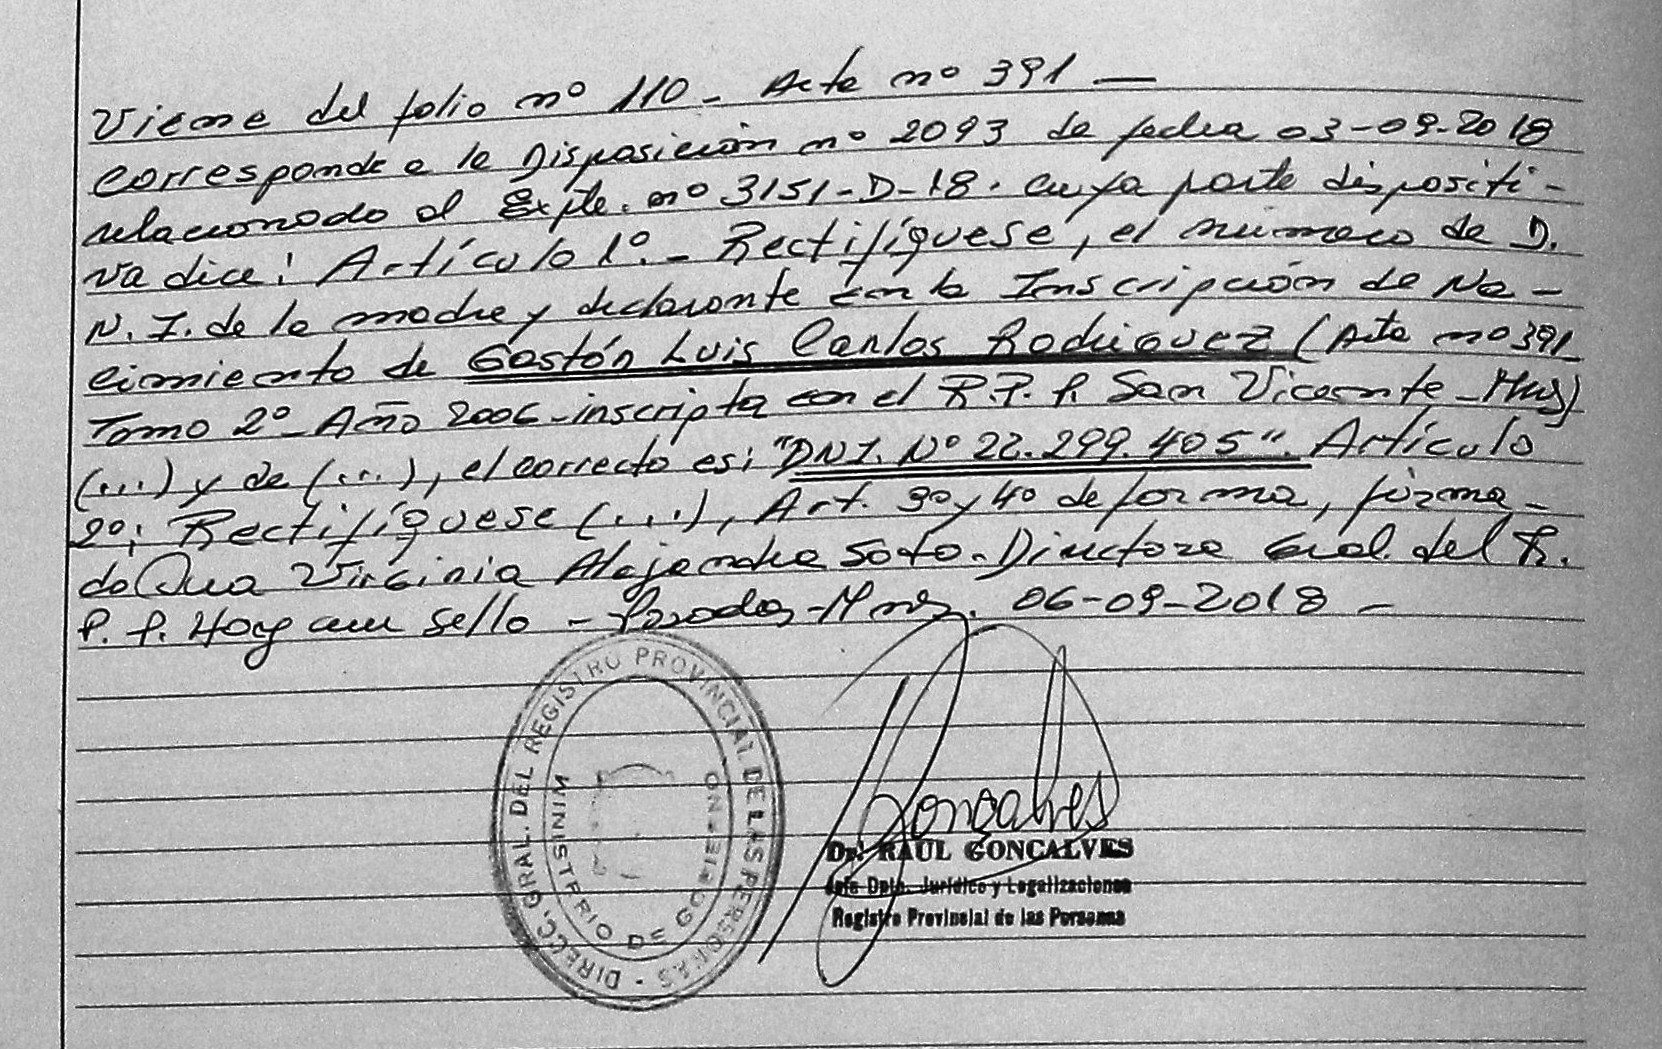 Viene del folio nº 110 - Acta nº 391 —
corresponde a la Disposición nº 2093 de fecha 03-09-2018
relacionado al Expte. nº 3151-D-18. cuya parte dispositi-
va dice: Artículo 1º.- Rectifíquese, el número de D.
N.I. de la madre y declarante en la Inscripción de Na-
cimiento de Gastón Luis Carlos Rodriguez (Acta nº 391
Tomo 2º - Año 2006 - inscripta en el R.P.P. San Vicente - Mns)
(...) y de (...), el correcto es: "DNI. Nº 22.299.405". Artículo
2º: Rectifíquese (...), Art. 3º y 4º de forma, firma-
do Virginia Alejandra Soto - Directora Gral. del R.
P.P. Hay un sello - Posadas - Mnes. 06-09-2018 -
DIRECC. GRAL. DEL REGISTRO PROVINCIAL DE LAS PERSONAS -
MINISTERIO DE GOBIERNO
Goncalves
Dr. RAUL GONCALVES
Jefe Dpto. Jurídico y Legalizaciones
Registro Provincial de las Personas